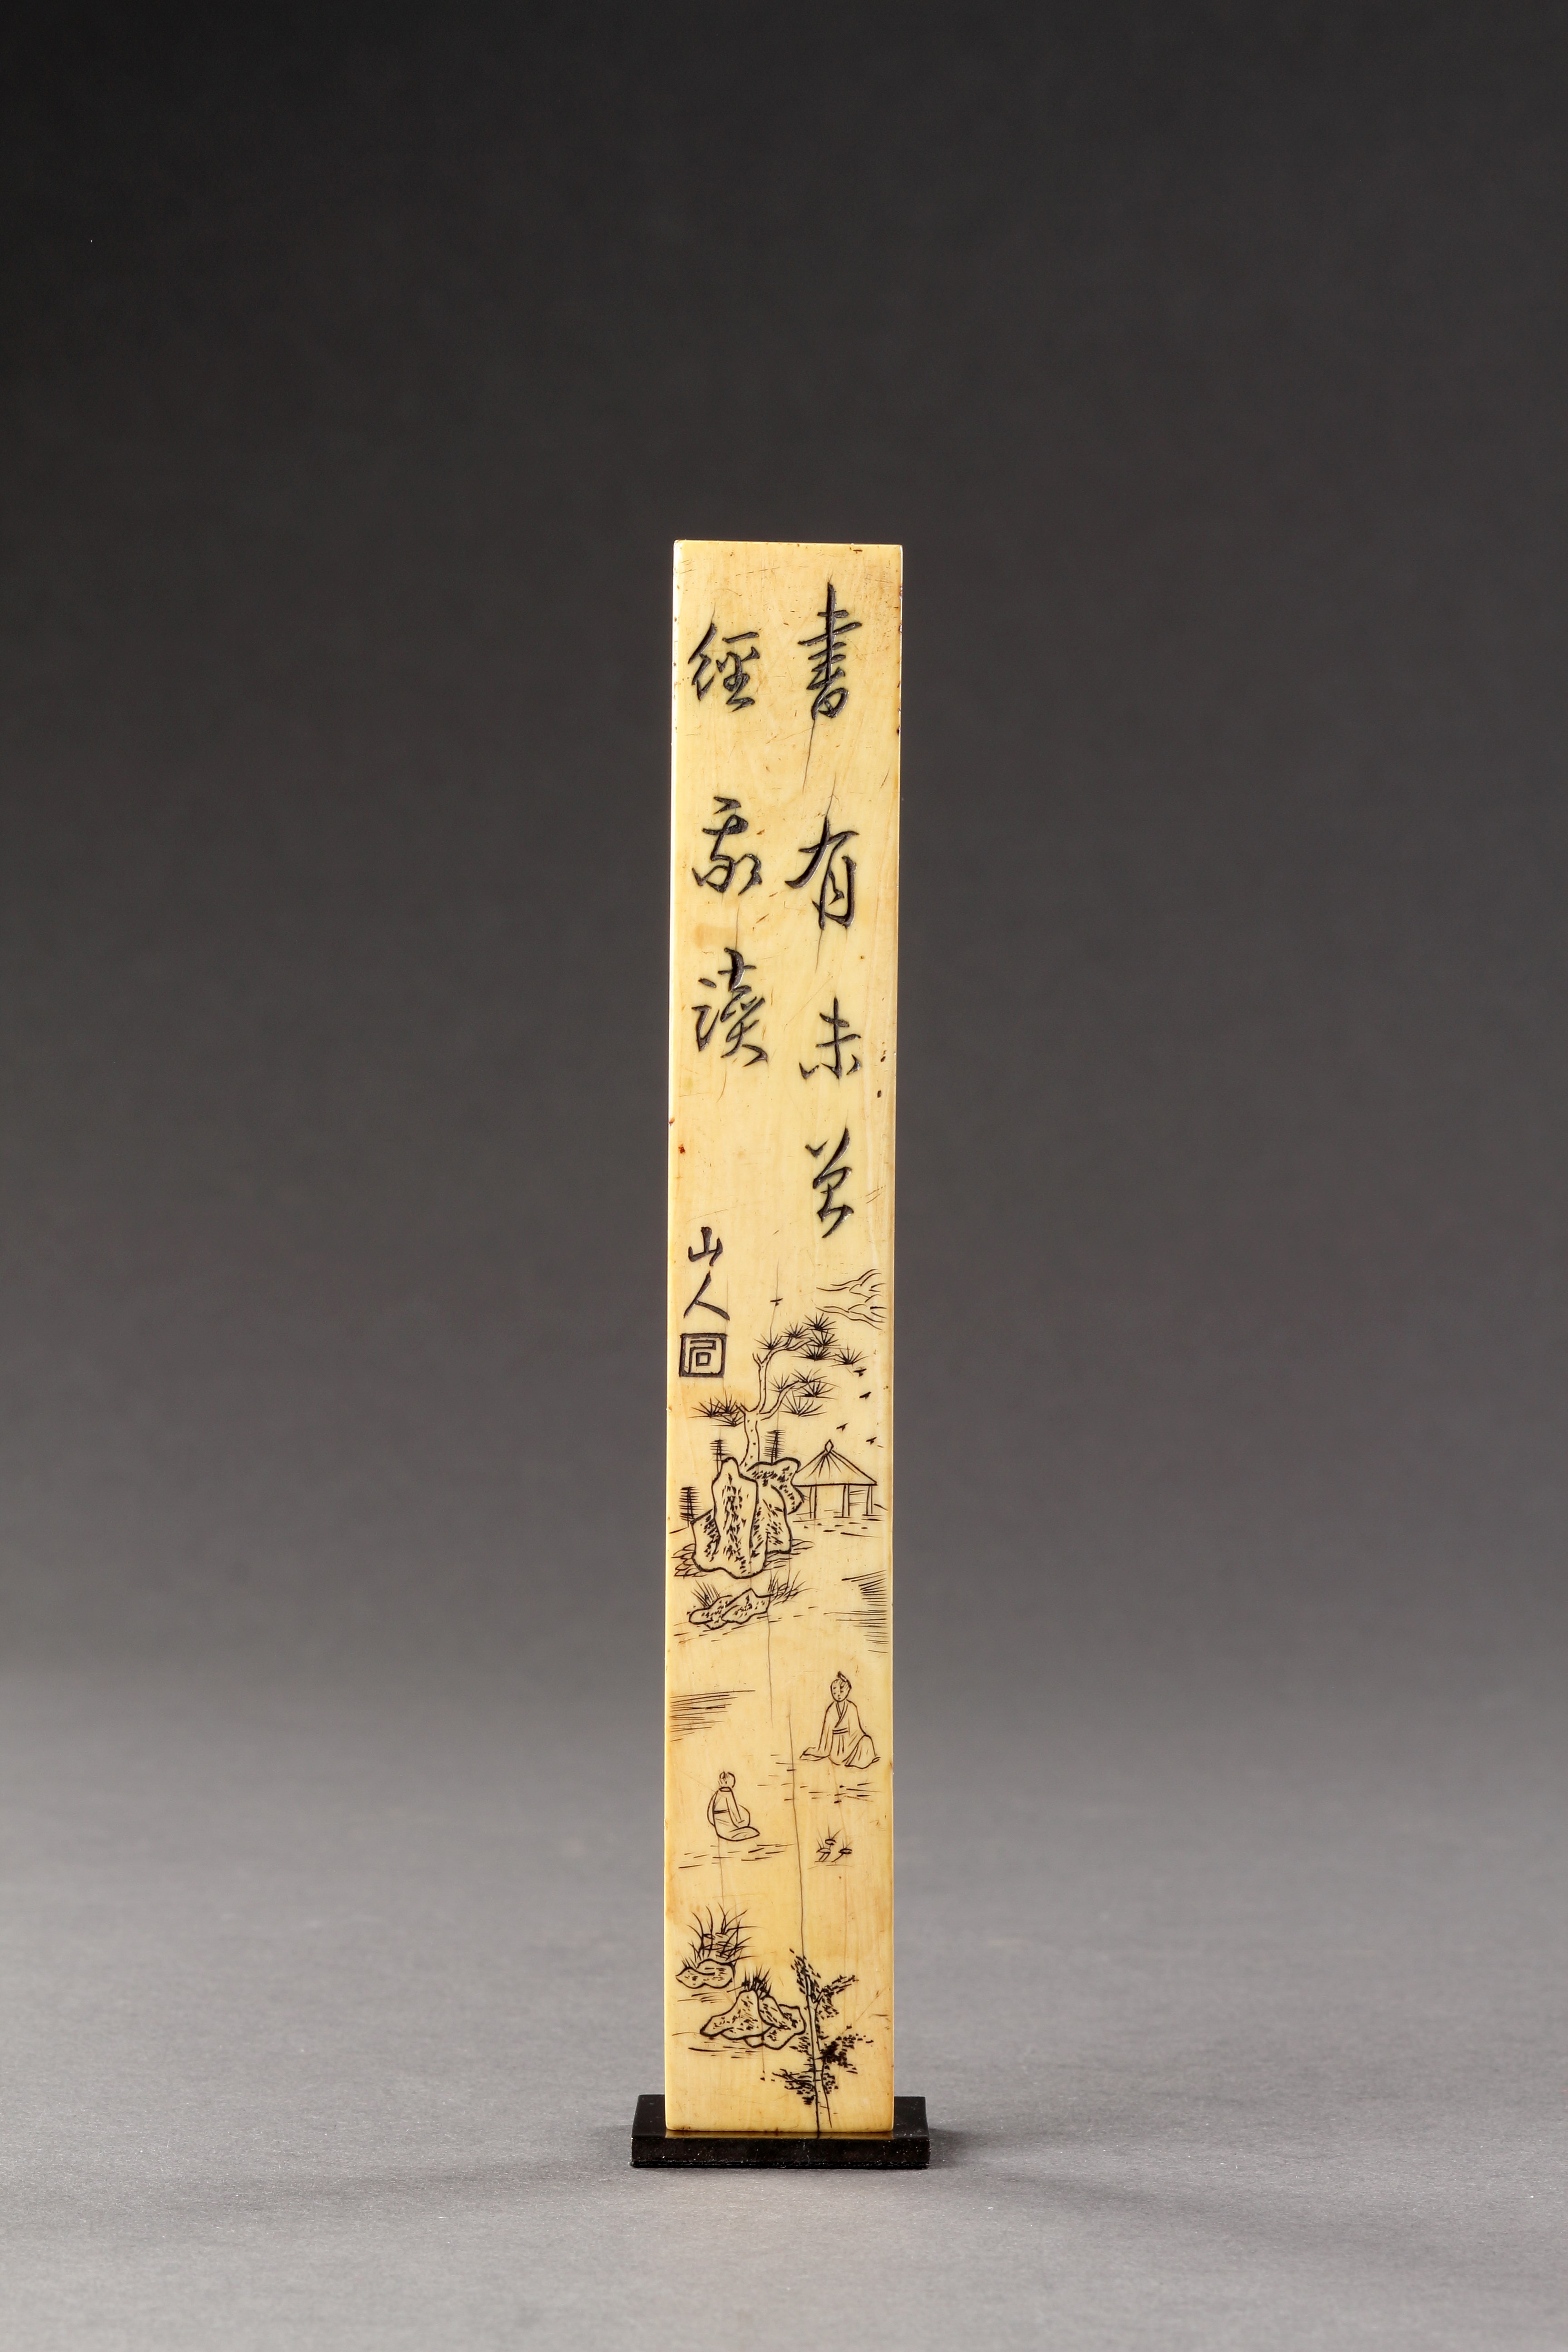 書有未曾
經我讀
山人
同